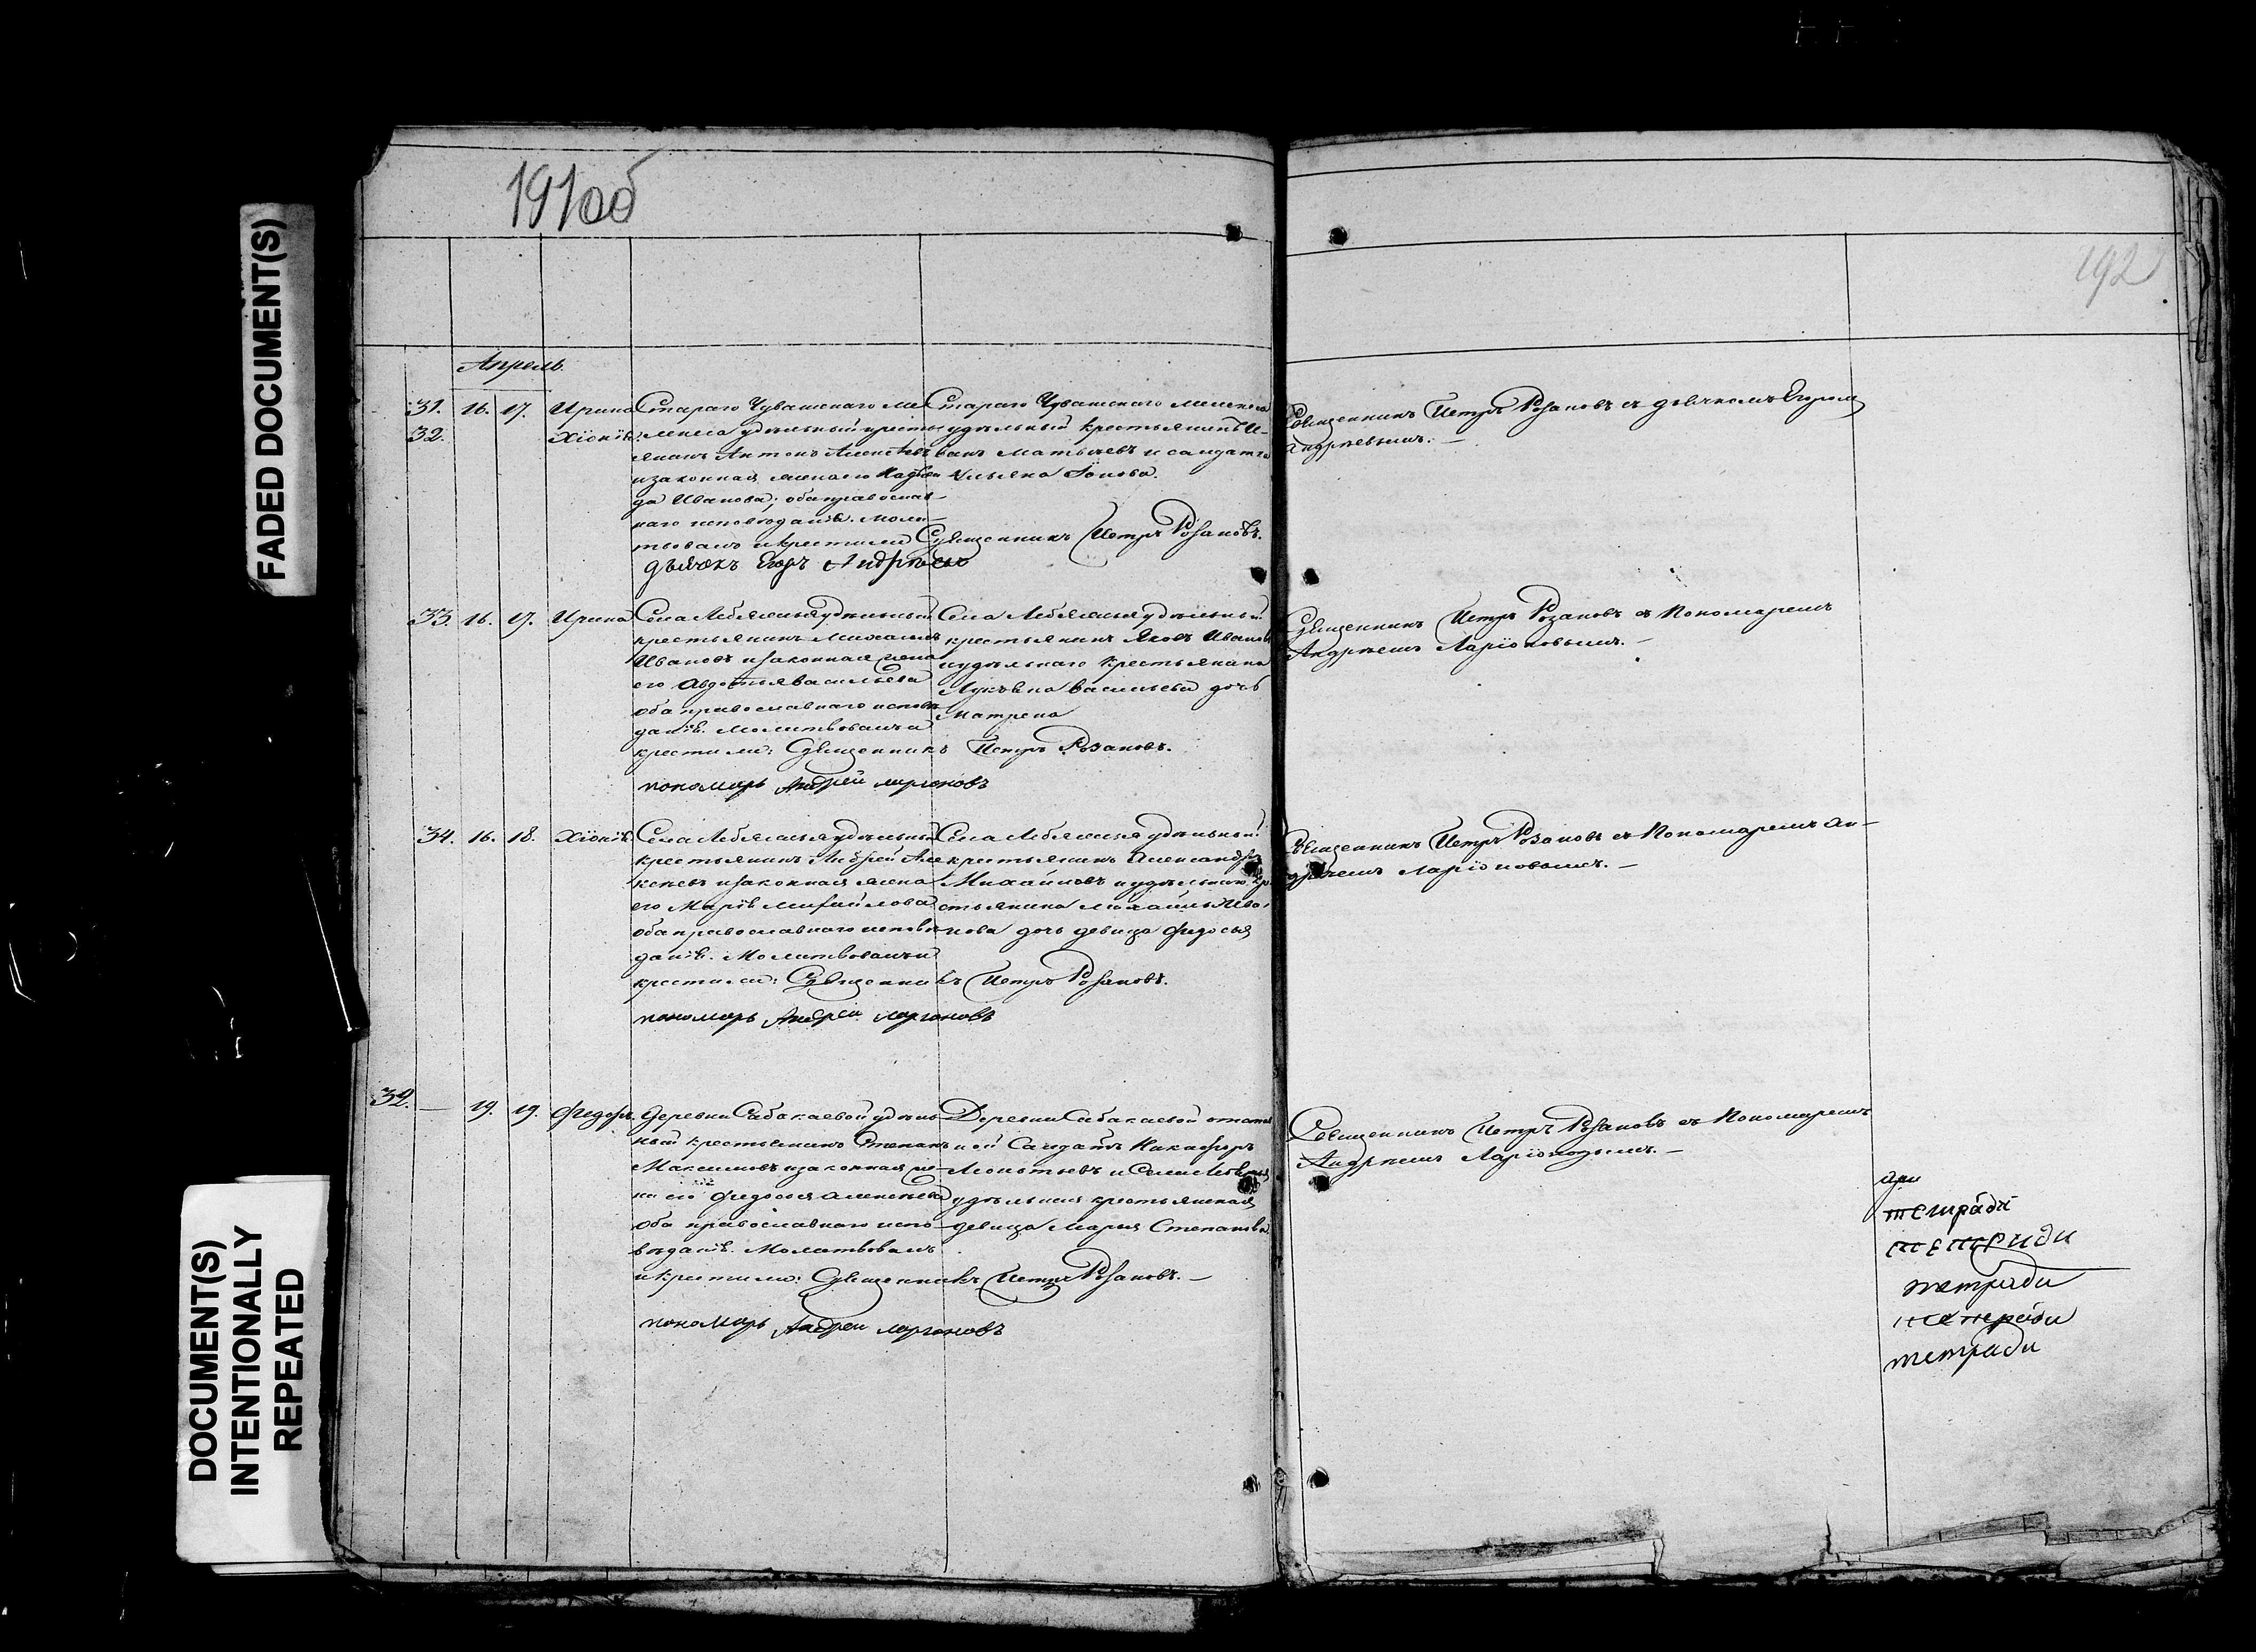 FADED DOCUMENT(S)
DOCUMENT(S)
INTENTIONALLY
REPEATED
191об
192
Апрель.
31. 16. 17. Ирина
32. Хіонія
Стараго Чувашскаго Ме
лекеса удѣльный кресть
янинъ Антонъ Алексѣевъ
и законная жена его Надѣж
да Иванова; оба православ-
наго исповѣданія. Моли-
твовалъ и крестилъ Священникъ Петръ Розановъ.
Дьячекъ Егоръ Андрѣевъ
Стараго Чувашскаго Мелекеса
удѣльный крестьянинъ И-
ванъ Матвѣевъ и солдатка
Ульяна Іонова.
Священникъ Петръ Розановъ съ дьячкомъ Егоромъ
Андрѣевымъ. —
33. 16. 17. Ирина
Села Лебяжья удѣльный
крестьянинъ Михаилъ
Ивановъ и законная жена
его Авдотья Васильева
оба православнаго исповѣ
данія. Молитвовалъ и
крестили: Священникъ Петръ Розановъ.
пономарь Андрей Ларіоновъ
Села Лебяжья удѣльный
крестьянинъ Яковъ Ивановъ
и удѣльнаго крестьянина
Лукьяна Васильева дочь
Матрена
Священникъ Петръ Розановъ съ Пономаремъ
Андрѣемъ Ларіоновымъ. —
34. 16. 18. Хіонія
Села Лебяжья удѣльный
крестьянинъ Андрей Але
ксѣевъ и законная жена
его Марія Михайлова
оба православнаго исповѣ
данія. Молитвовалъ и
крестили: Священникъ Петръ Розановъ.
пономарь Андрей Ларіоновъ
Села Лебяжья удѣльный
крестьянинъ Александръ
Михайловъ и удѣльнаго кре
стьянина Михаила Ива-
нова дочь девица Федосья
Священникъ Петръ Розановъ съ Пономаремъ Ан-
дрѣемъ Ларіоновымъ. —
32. — 19. 19. Федоръ.
Деревни Сабакаевой удѣль
ный крестьянинъ Степанъ
Максимовъ и законная же-
на его Федосья Алексѣева
оба православнаго испо-
вѣданія. Молитвовалъ
и крестили: Священникъ Петръ Розановъ. —
пономарь Андрей Ларіоновъ
Деревни Сабакаевой отстав
ной Салдатъ Никифоръ
Леонтьевъ и Села Лебяжья
удѣльная крестьянская
девица Марья Степанова.
Священникъ Петръ Розановъ съ Пономаремъ
Андрѣемъ Ларіоновымъ. —
при
тетради
тетради
тетради
тетради
тетради